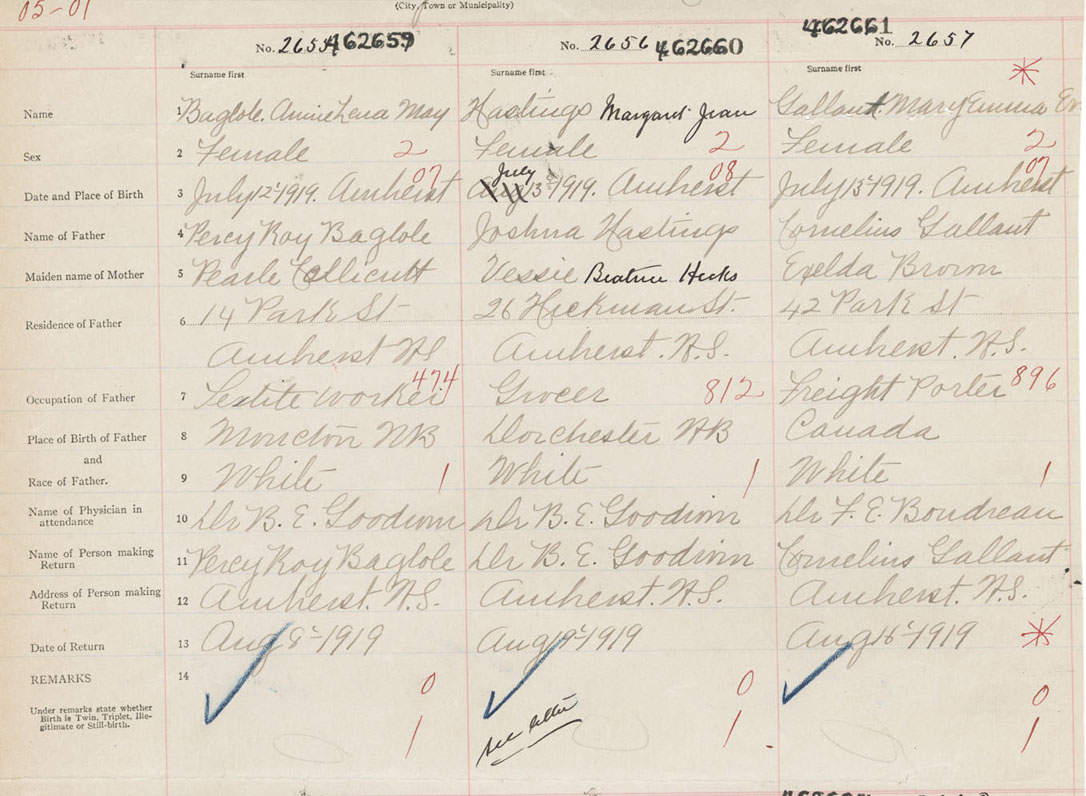 05-01
(City, Town or Municipality)
No. 2655 462659 No. 2656 462660 462661 No. 2657
Surname first Surname first Surname first *
Name 1 Baglole. Annie Lena May Hastings Margaret Jean Gallant. Mary Emma
Sex 2 Female 2 Female 2 Female 2
07 July 08 07
Date and Place of Birth 3 July 12 1919. Amherst Aug 13 1919. Amherst July 15 1919. Amherst
Name of Father 4 Percy Roy Baglole Joshua Hastings Cornelius Gallant
Maiden name of Mother 5 Pearle Ellicutt Vessie Beatrice Hicks Exelda Brown
Residence of Father 6 14 Park St 26 Hickman St. 42 Park St
Amherst NS Amherst. N.S. Amherst. N.S.
Occupation of Father 7 Textile worker 474 Grocer 812 Freight Porter 896
Place of Birth of Father 8 Moncton NB Dorchester NB Canada
and
Race of Father. 9 White 1 White 1 White 1
Name of Physician in attendance 10 Dr B. E. Goodwin Dr B. E. Goodwin Dr F. E. Boudreau
Name of Person making Return 11 Percy Roy Baglole Dr B. E. Goodwin Cornelius Gallant
Address of Person making Return 12 Amherst. N.S. Amherst. N.S. Amherst. N.S.
Date of Return 13 Aug 8 1919 Aug 19 1919 Aug 16 1919 *
REMARKS 14 0 0 0
Under remarks state whether
Birth is Twin, Triplet, Ille-
gitimate or Still-birth. 1 see letter 1 1